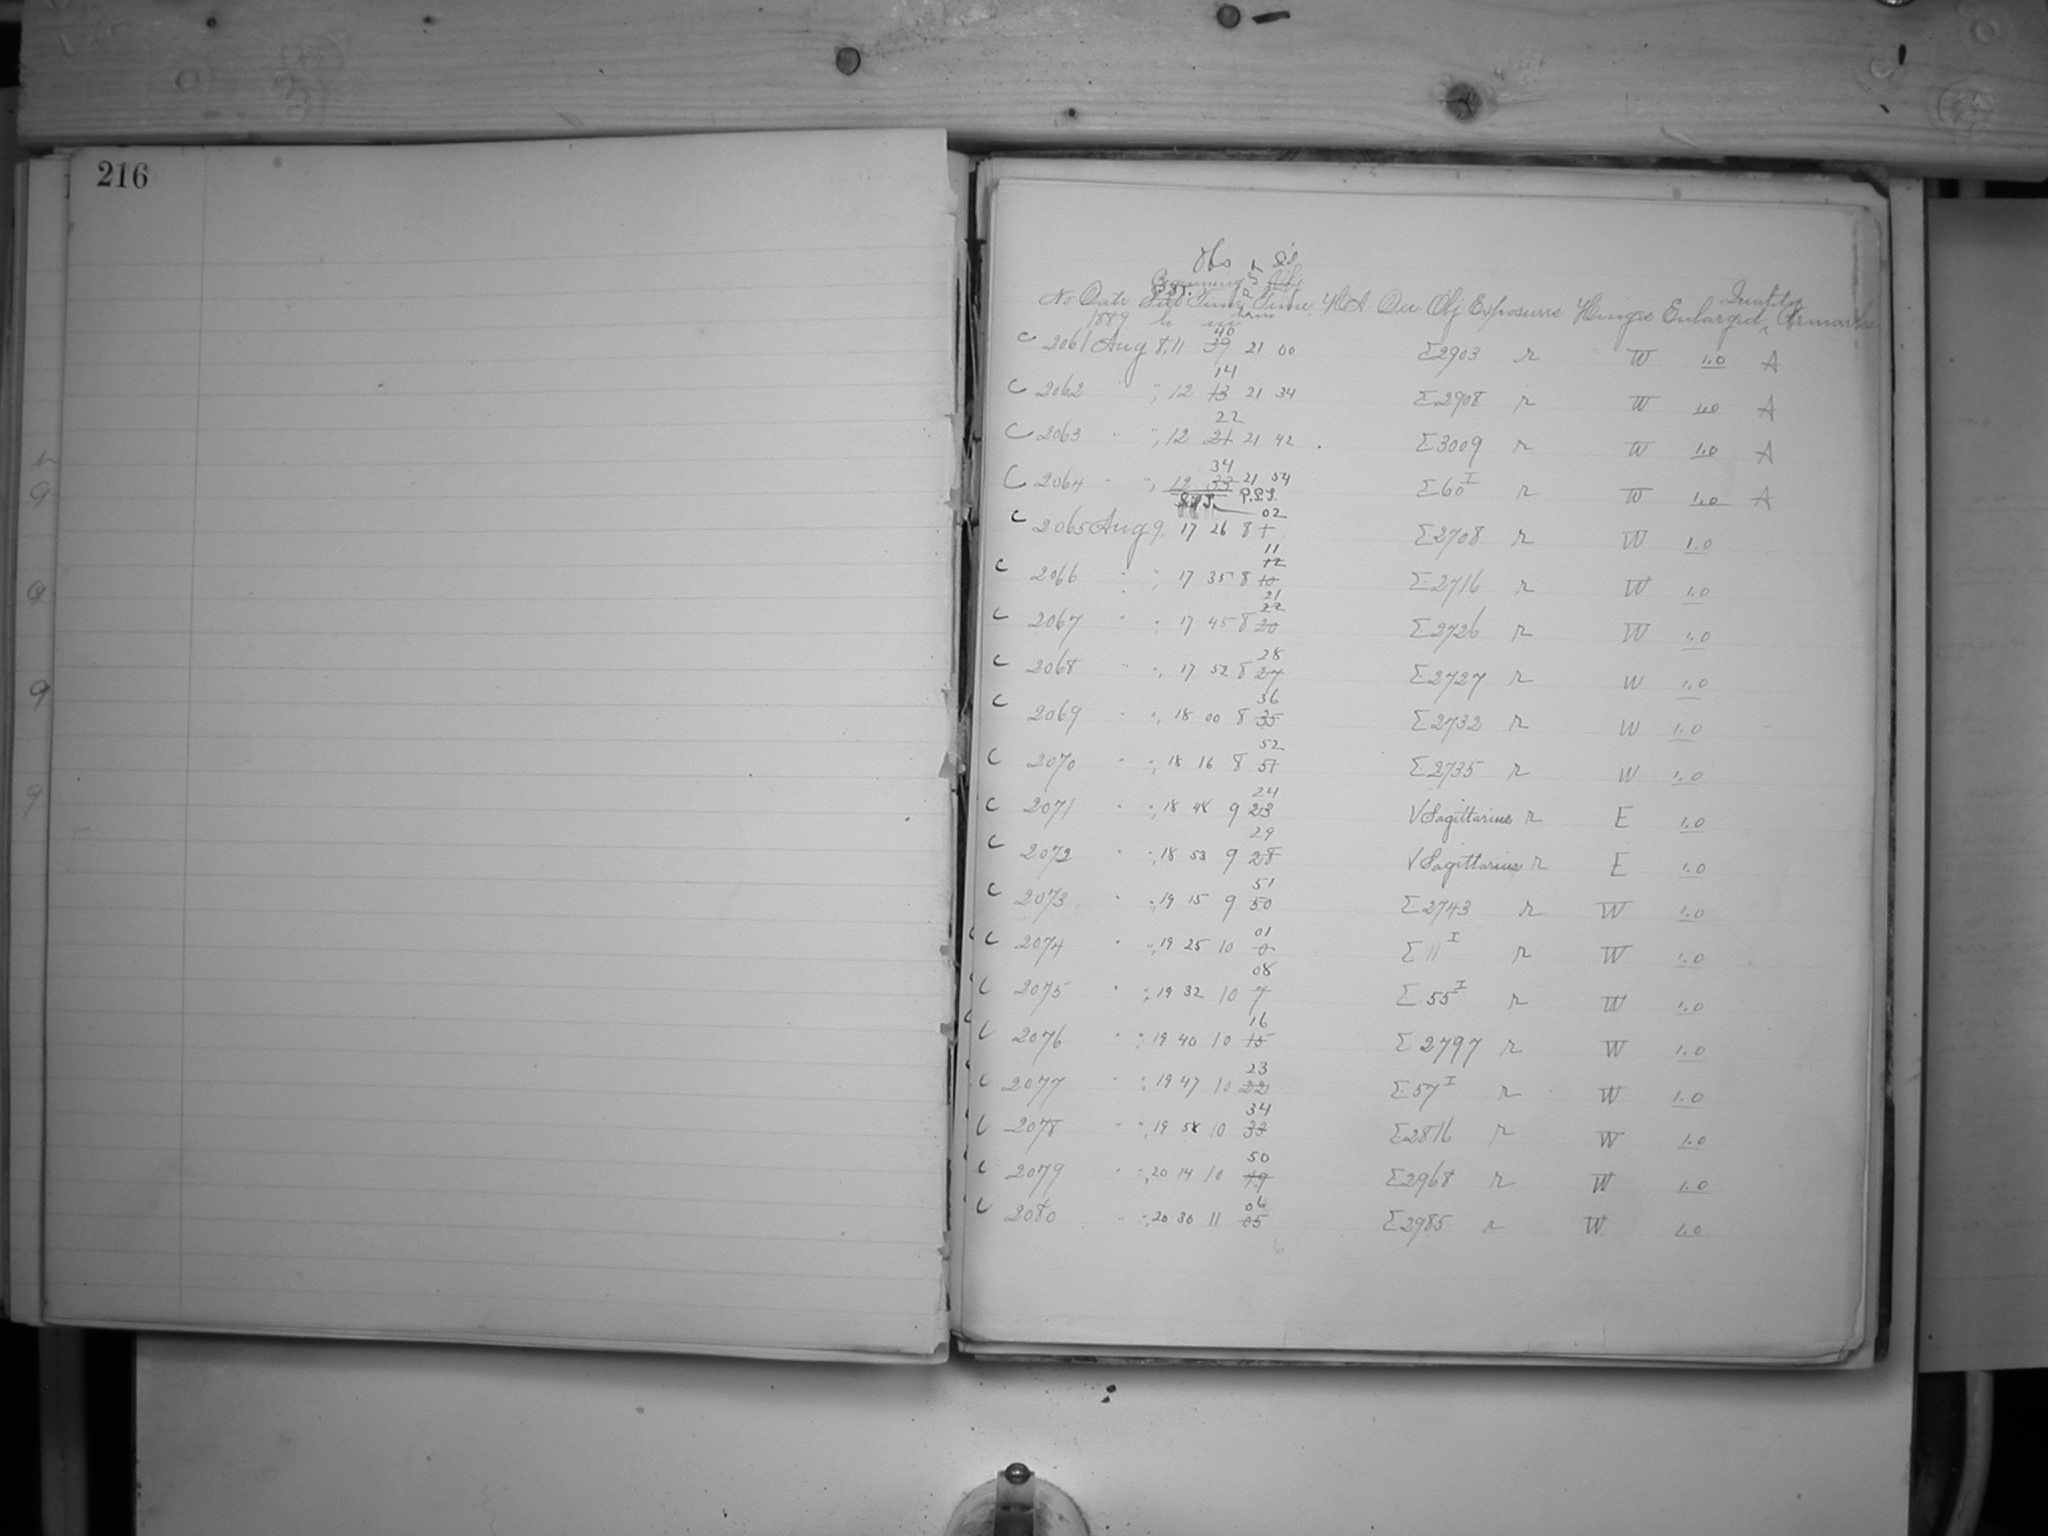 216
Obs Sid
P.S.T.
No Date Sid Time Time H.A. Dec Obj Exposure Hinge Enlarged Quality Remarks
1889 h m
40
C 2061 Aug 8, 11 39 21 00 Σ2903 r W 1.0 A
14
C 2062 " ", 12 13 21 34 Σ2908 r W 1.0 A
22
C 2063 " ", 12 21 21 42 Σ3009 r W 1.0 A
34
C 2064 " ", 12 33 21 54 Σ60 I r W 1.0 A
P.S.T.
02
C 2065 Aug 9, 17 26 8 1 Σ2708 r W 1.0
11
12
C 2066 " ", 17 35 8 10 Σ2716 r W 1.0
21
22
C 2067 " ", 17 45 8 20 Σ2726 r W 1.0
28
C 2068 " ", 17 52 8 27 Σ2727 r W 1.0
36
C 2069 " ", 18 00 8 35 Σ2732 r W 1.0
52
C 2070 " ", 18 16 8 51 Σ2735 r W 1.0
24
C 2071 " ", 18 48 9 23 V Sagittarius r E 1.0
29
C 2072 " ", 18 53 9 28 V Sagittarius r E 1.0
51
C 2073 " ", 19 15 9 50 Σ2743 r W 1.0
01
C 2074 " ", 19 25 10 0 Σ11 I r W 1.0
08
C 2075 " ", 19 32 10 7 Σ55 I r W 1.0
16
C 2076 " ", 19 40 10 15 Σ2797 r W 1.0
23
C 2077 " ", 19 47 10 22 Σ57 I r W 1.0
34
C 2078 " ", 19 58 10 33 Σ2816 r W 1.0
50
C 2079 " ", 20 14 10 49 Σ2968 r W 1.0
06
C 2080 " ", 20 30 11 05 Σ2985 r W 1.0